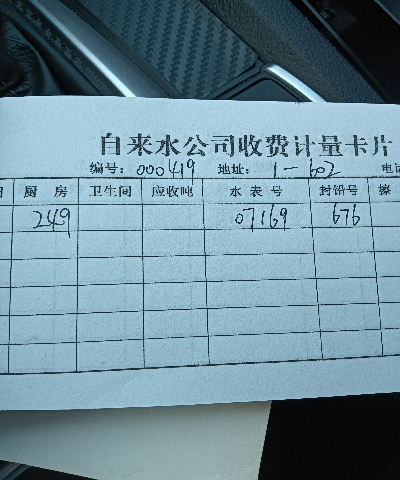 自来水公司收费计量卡片
编号: 000419 地址: 1-602 电话
期 厨房 卫生间 应收吨 水表号 封铅号
249 07169 676